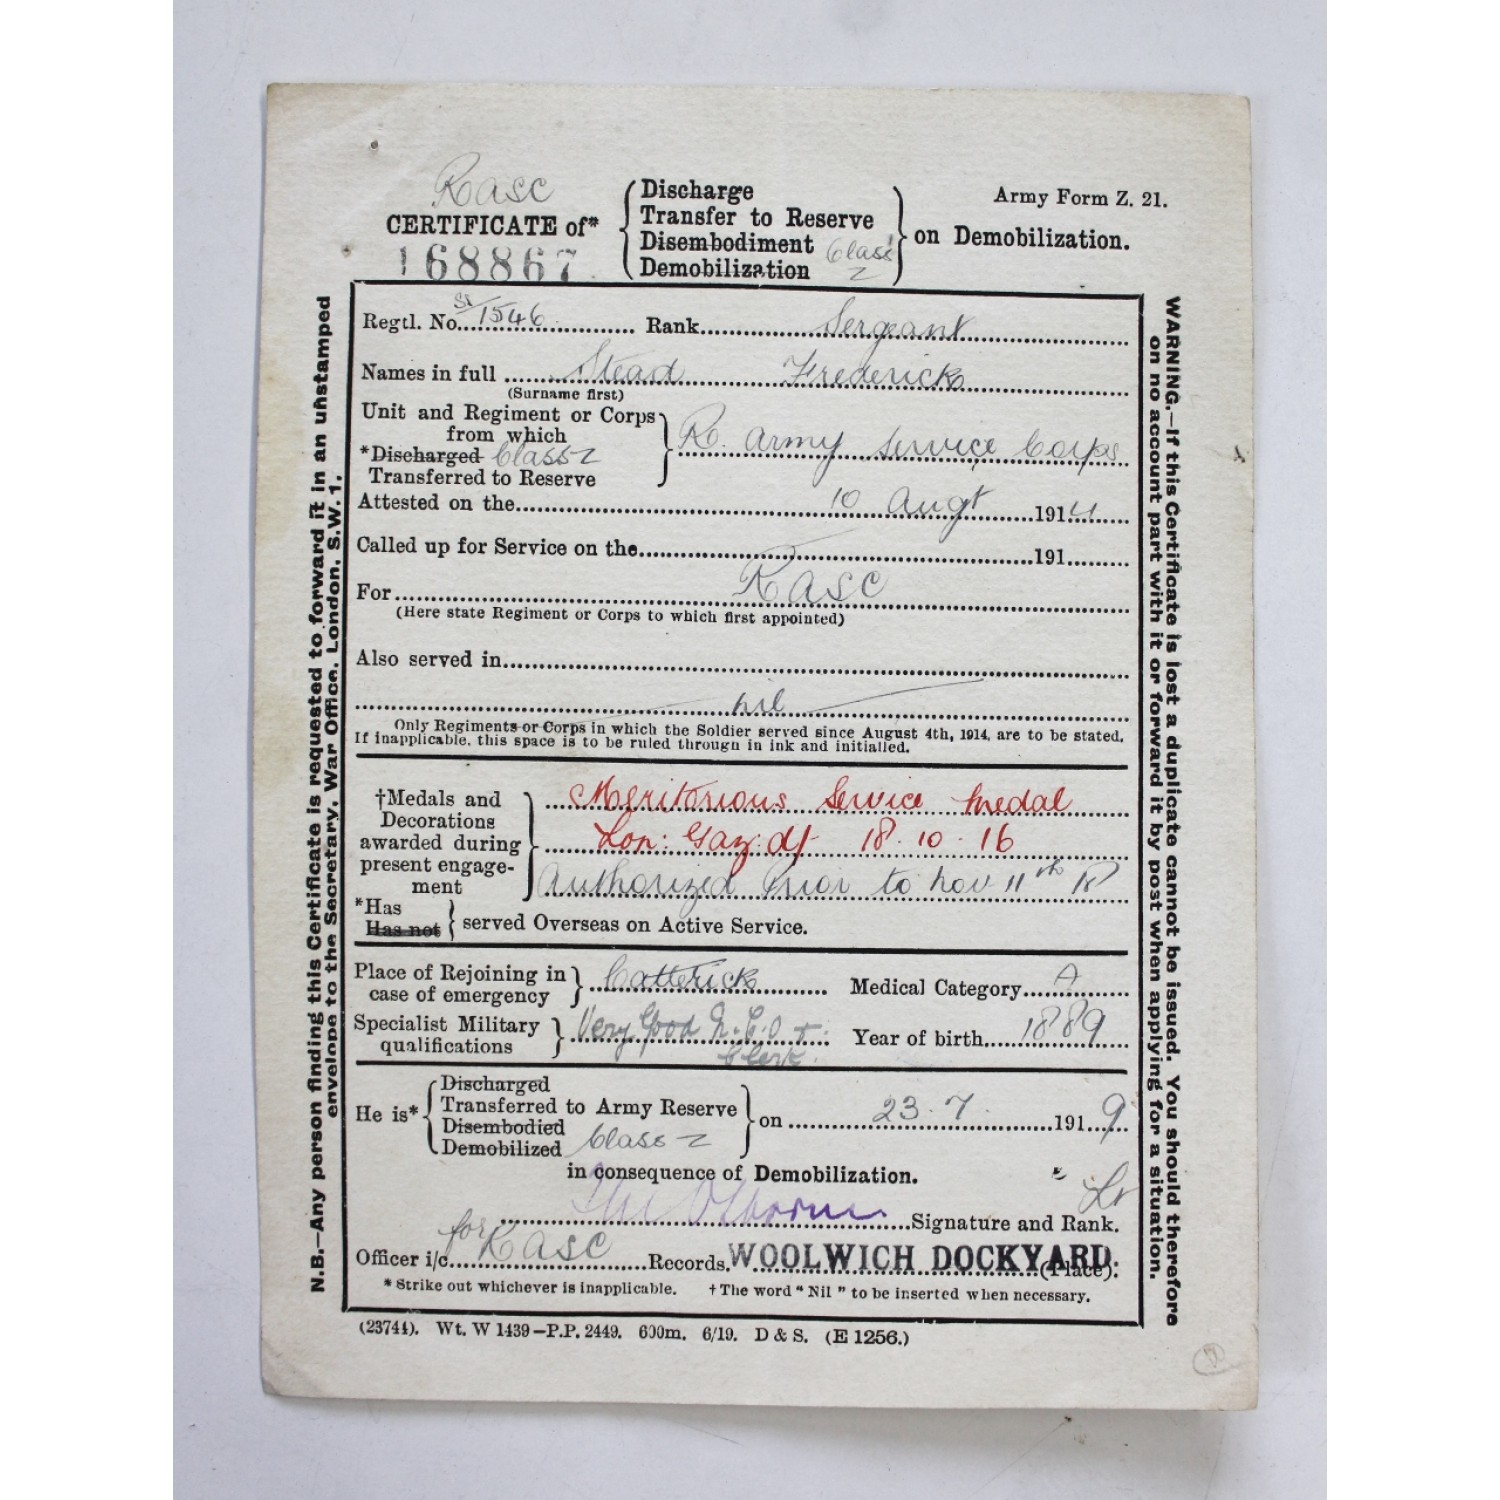 Rasc
CERTIFICATE of*
168867
Discharge
Transfer to Reserve
Disembodiment
Demobilization
Class Z
on Demobilization.
Army Form Z. 21.
Regtl. No. S4/1546 Rank Sergeant
Names in full Stead Frederick
(Surname first)
Unit and Regiment or Corps
from which
*Discharged Class Z
Transferred to Reserve
R. Army Service Corps
Attested on the 10 Augt 1914
Called up for Service on the 191
For RASC
(Here state Regiment or Corps to which first appointed)
Also served in
nil
Only Regiments or Corps in which the Soldier served since August 4th, 1914, are to be stated.
If inapplicable, this space is to be ruled through in ink and initialled.
†Medals and
Decorations
awarded during
present engage-
ment
Meritorious Service Medal
Lon: Gaz: dt 18.10.16
Authorized Prior to Nov 11th 18
*Has
Has not
served Overseas on Active Service.
Place of Rejoining in
case of emergency
Catterick
Medical Category A
Specialist Military
qualifications
Very Good N.C.O +
Clerk.
Year of birth 1889
He is*
Discharged
Transferred to Army Reserve
Disembodied
Demobilized
Class Z
on 23.7. 1919
in consequence of Demobilization.
Osborne Lt
Signature and Rank.
Officer i/c for RASC Records. WOOLWICH DOCKYARD. (Place).
* Strike out whichever is inapplicable. † The word "Nil" to be inserted when necessary.
(23744). Wt. W 1439—P.P. 2449. 600m. 6/19. D & S. (E 1256.)
N.B.—Any person finding this Certificate is requested to forward it in an unstamped
envelope to the Secretary, War Office, London, S.W. 1.
WARNING.—If this Certificate is lost a duplicate cannot be issued. You should therefore
on no account part with it or forward it by post when applying for a situation.